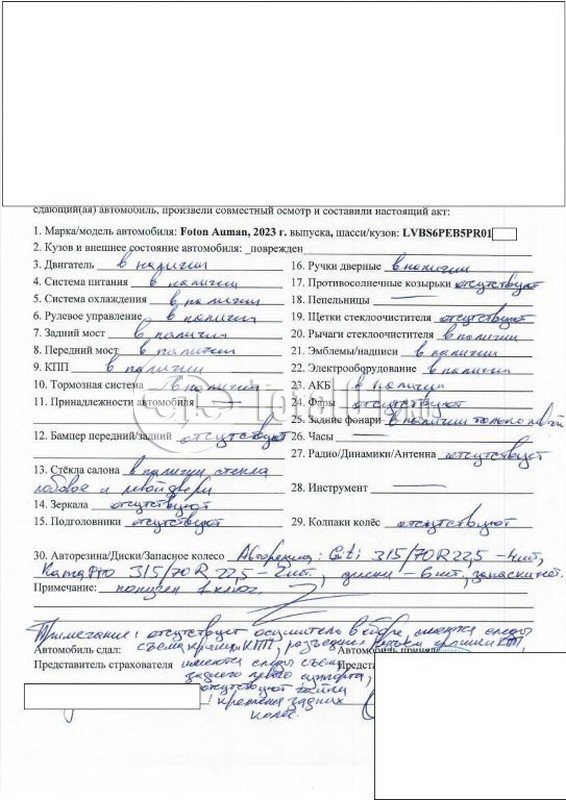 сдающий(ая) автомобиль, произвели совместный осмотр и составили настоящий акт:
1. Марка/модель автомобиля: Foton Auman, 2023 г. выпуска, шасси/кузов: LVBS6PEB5PR01
2. Кузов и внешнее состояние автомобиля: _поврежден
3. Двигатель в наличии
4. Система питания в наличии
5. Система охлаждения в наличии
6. Рулевое управление в наличии
7. Задний мост в наличии
8. Передний мост в наличии
9. КПП в наличии
10. Тормозная система в наличии
11. Принадлежности автомобиля —
12. Бампер передний/задний отсутствует
13. Стёкла салона в наличии стекла
лобовое и левой двери
14. Зеркала отсутствуют
15. Подголовники отсутствуют
16. Ручки дверные в наличии
17. Противосолнечные козырьки отсутствуют
18. Пепельницы —
19. Щетки стеклоочистителя отсутствуют
20. Рычаги стеклоочистителя в наличии
21. Эмблемы/надписи в наличии
22. Электрооборудование в наличии
23. АКБ в наличии
24. Фары отсутствуют
25. Задние фонари в наличии только левый
26. Часы —
27. Радио/Динамики/Антенна отсутствует
28. Инструмент —
29. Колпаки колёс отсутствуют
30. Авторезина/Диски/Запасное колесо Авторезина: Giti 315/70R22,5 – 4шт,
Кама Pro 315/70R 22,5 – 2шт., диски – 6шт, запаски нет.
Примечание: получен 1 ключ.
Примечание: отсутствует осушитель в сборе, имеются следы
съема крышки КПП, разъединен разъем крышки КПП,
имеются следы съема
заднего левого суппорта,
отсутствуют гайки
крепления задних
колес.
Автомобиль сдал:
Представитель страхователя
Автомобиль принял:
Предста